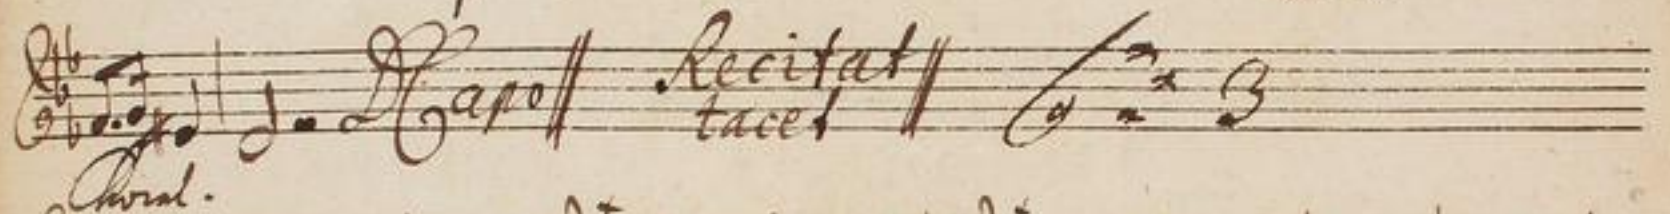 DCapo Recitat
tacet
3
Choral.